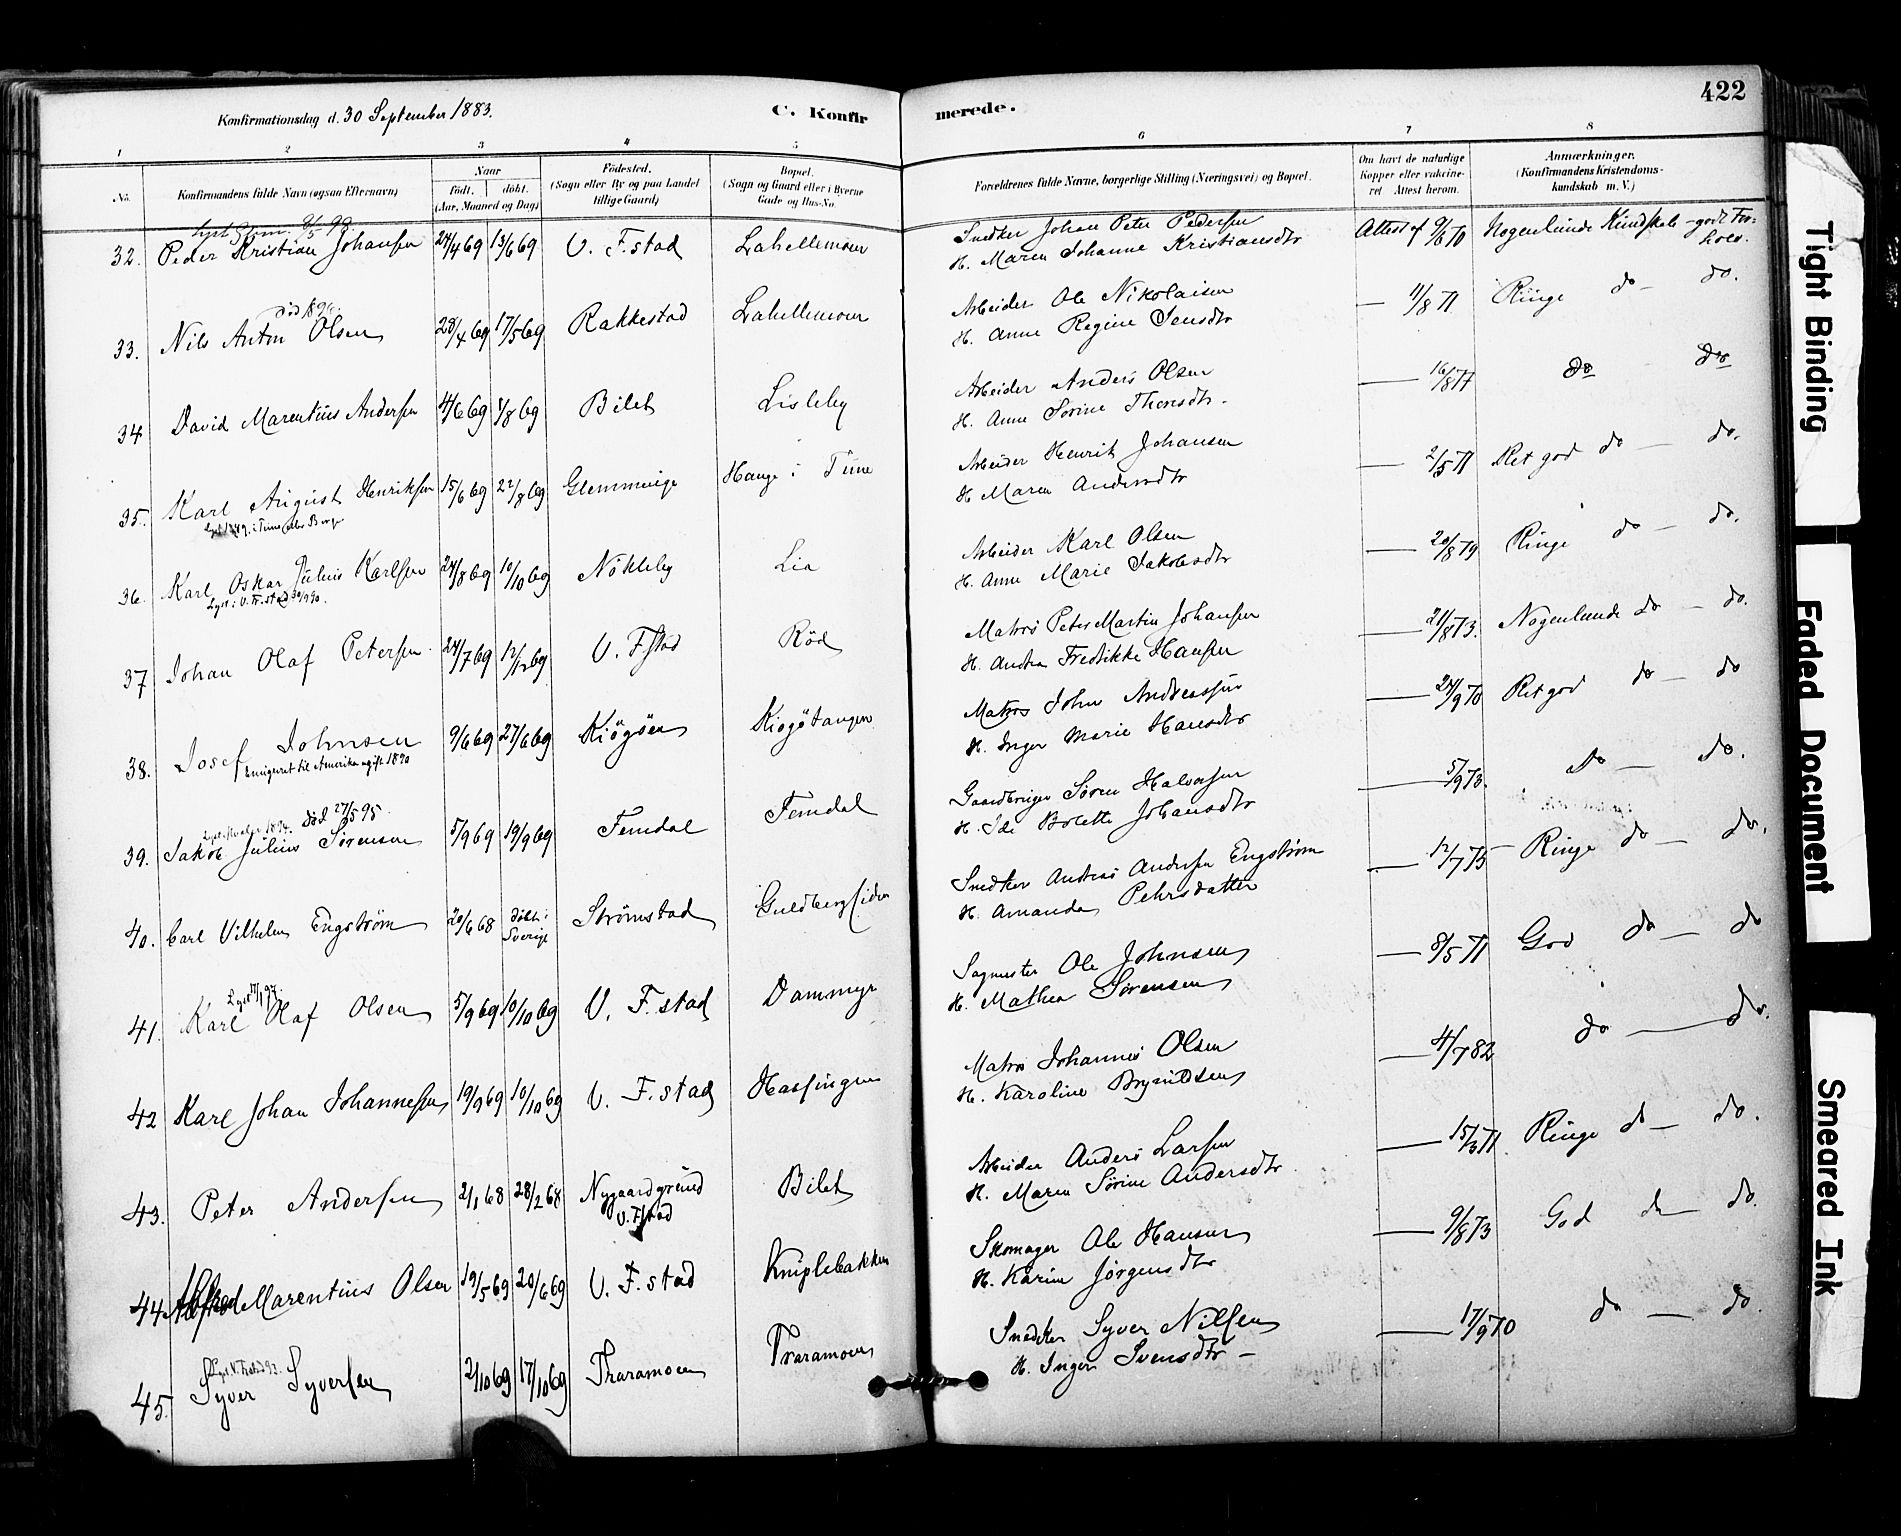 422
Konfirmationsdag d. 30 September 1883.
C. Konfirmerede.
1 2 3 4 5 6 7 8
No. Konfirmandens fulde Navn (ogsaa Efternavn) Naar født. døbt. (Aar, Maaned og Dag) Fødested. (Sogn eller By og paa Landet tillige Gaard) Bopæl. (Sogn og Gaard eller i Byerne Gade og Hus-No. Forældrenes fulde Navne, borgerlige Stilling (Næringsvei) og Bopæl. Om havt de naturlige Kopper eller vaccineret Attest herom. Anmærkninger. (Konfirmandens Kristendomskundskab m. V.)
32. Peder Kristian Johansen 24/4 69 13/6 69 V. F.stad Lahellemoen Snedker Johan Peter Pedersen Attest af 9/6 70 Nogenlunde Kundskab - godt Forhold.
H. Maren Johanne Kristiansdtr
død 189
33. Nils Anton Olsen 28/4 69 17/5 69 Rakkestad Lahellemoen Arbeider Ole Nikolaisen — 11/8 71 Ringe do — do.
H. Anne Regine Jensdtr
34 David Marentius Andersen 4/6 69 1/8 69 Bilet Lisleby Arbeider Anders Olsen — 16/8 77 do do
H. Anne Sorine Thoresdtr.
35. Karl August Henriksen 15/6 69 22/8 69 Glemminge Hauge i Tune Arbeider Henrik Johansen — 2/5 71 Ret god do — do.
H Maren Andersdtr
36. Karl Oskar Julius Karlsen 24/8 69 10/10 69 Nökleby Lia Arbeider Karl Olsen — 20/8 79 Ringe do — do.
Lyst i V. Fr.stad 30/9 90.
H. Anne Marie Jakobsdtr
37 Johan Olaf Petersen 24/7 69 12/12 69 V. F.stad Röd Matros Peter Martin Johansen — 21/8 73. Nogenlunde do — do.
H. Andrea Fredrikke Hansen
38. Josef Johnsen 9/6 69 27/6 69 Kiögöen Kiogötangen Matros John Andreassen — 24/9 70 Ret god do — do
Emigreret til Amerika ugift 1890
H. Inger Marie Hansdtr
død 27/5 95
39. Jakob Julius Sörensen 5/9 69 19/9 69 Femdal Femdal Gaardbruger Sören Halvorsen — 5/9 73. Do — do.
H. Ida Bolette Johansdtr
40. Carl Vilhelm Engström 20/6 68 döbt i Sverige Strömstad Guldbergsiden Snedker Andreas Andersen Engström — 12/7 75 — Ringe do — do.
H. Amanda Pehrsdatter
Lyst 11/1 97.
41. Karl Olaf Olsen 5/9 69 10/10 69 V. F.stad Dammyr Sagmester Ole Johnsen — 8/5 71 God do — do
H. Mathea Sörensen
42 Karl Johan Johannesen 19/9 69 10/10 69 V. F.stad Hassingen Matros Johannes Olsen — 4/7 82 do — do.
H. Karoline Brynildsen
43. Peter Andersen 2/1 68 28/2 68 Nygaardgrund V. F.stad Bilet Arbeider Anders Larsen — 15/3 71 Ringe do — do.
H. Maren Sörine Andersdtr
44 Alfred Marentius Olsen 19/5 69 20/6 69 V. F.stad Kniplebakken Skomager Ole Hansen — 9/8 73 God do — do.
H. Karine Jörgensdtr
45. Syver Syversen 2/10 69 17/10 69 Traramoen Traramoen Snedker Syver Nilsen — 17/9 70 do — do
H. Inger Svensdtr —
Tight Binding
Faded Document
Smeared Ink